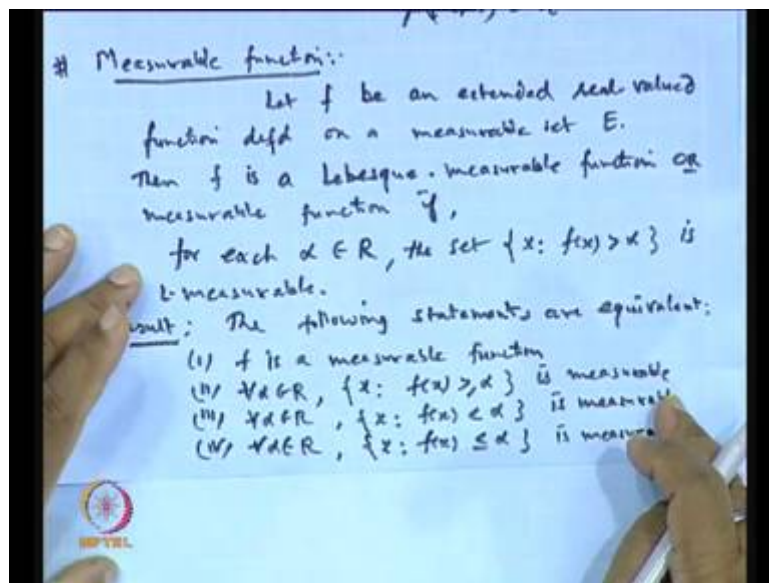 # Measurable function:-
Let f be an extended real-valued
function defd on a measurable set E.
Then f is a Lebesgue-measurable function OR
measurable function if,
for each α ∈ R, the set {x: f(x) > α} is
L-measurable.
sult: The following statements are equivalent:
(i) f is a measurable function
(ii) ∀α∈R, {x: f(x) ≥ α} is measurable
(iii) ∀α∈R, {x: f(x) < α} is measurabl
(iv) ∀α∈R, {x: f(x) ≤ α} is measura
NPTEL